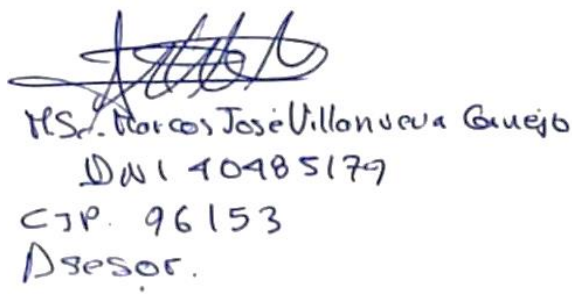 MSc. Marcos José Villanueva Cornejo
DNI 40485179
CIP. 96153
Asesor.